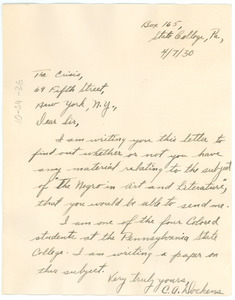 Box 165,
State College, Pa.,
4/7/30
The Crisis,
69 Fifth Street,
New York, N.Y.,
Dear Sir,
I am writing you this letter to
find out whether or not you have
any material relating to the subject
of the Negro in Art and Literature,
that you would be able to send me.
I am one of the four Colored
students at the Pennsylvania State
College. I am writing a paper on
this subject.
Very truly yours,
C. A. Dockens